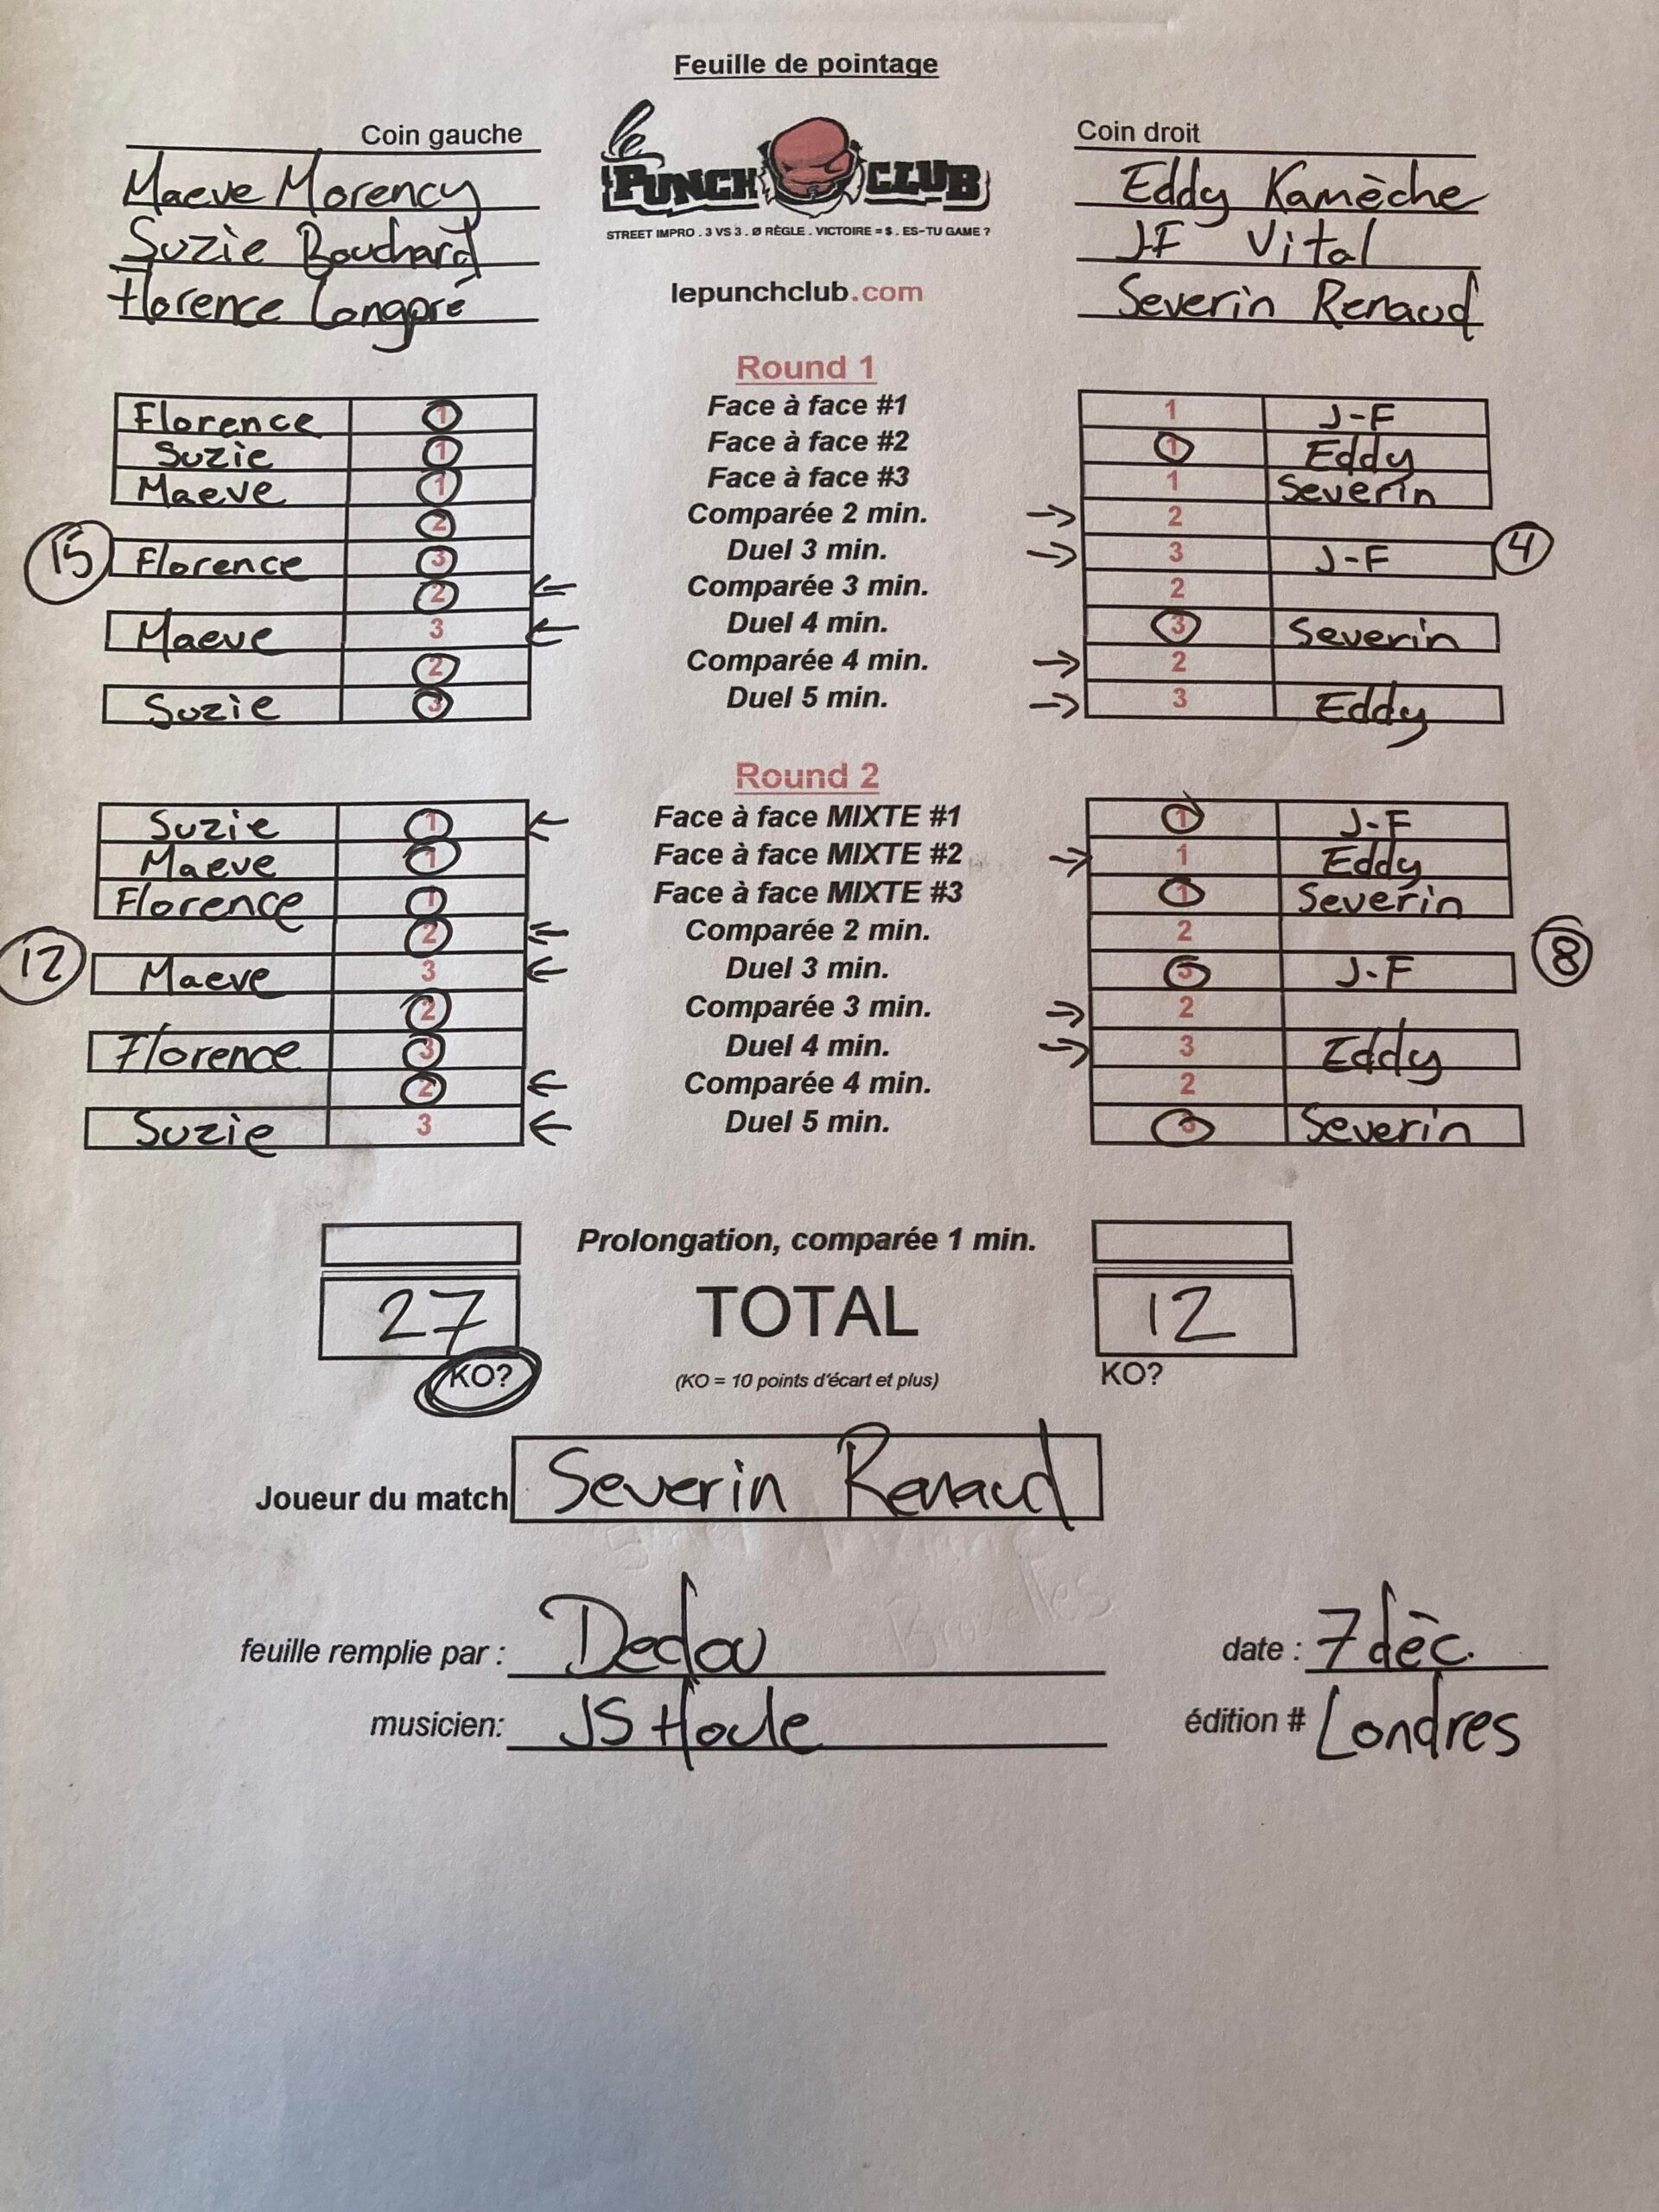 Feuille de pointage
Coin gauche
Coin droit
le
PUNCH CLUB
STREET IMPRO . 3 VS 3 . Ø RÈGLE . VICTOIRE = $ . ES-TU GAME ?
lepunchclub.com
Maeve Morency
Suzie Bouchard
Florence Longpré
Eddy Kamèche
J-F Vital
Severin Renaud
Round 1
Florence 1 Face à face #1 1 J-F
Suzie 1 Face à face #2 1 Eddy
Maeve 1 Face à face #3 1 Severin
2 Comparée 2 min. → 2
15 Florence 3 Duel 3 min. → 3 J-F 4
2 ← Comparée 3 min. 2
Maeve 3 ← Duel 4 min. 3 Severin
2 Comparée 4 min. → 2
Suzie 3 Duel 5 min. → 3 Eddy
Round 2
Suzie 1 ← Face à face MIXTE #1 1 J-F
Maeve 1 Face à face MIXTE #2 → 1 Eddy
Florence 1 Face à face MIXTE #3 1 Severin
2 ← Comparée 2 min. 2
12 Maeve 3 ← Duel 3 min. 3 J-F 8
2 Comparée 3 min. → 2
Florence 3 Duel 4 min. → 3 Eddy
2 ← Comparée 4 min. 2
Suzie 3 ← Duel 5 min. 3 Severin
Prolongation, comparée 1 min.
27 TOTAL 12
KO? (KO = 10 points d'écart et plus) KO?
Joueur du match Severin Renaud
feuille remplie par : Dedou date : 7 dèc.
musicien: JS Houle édition # Londres